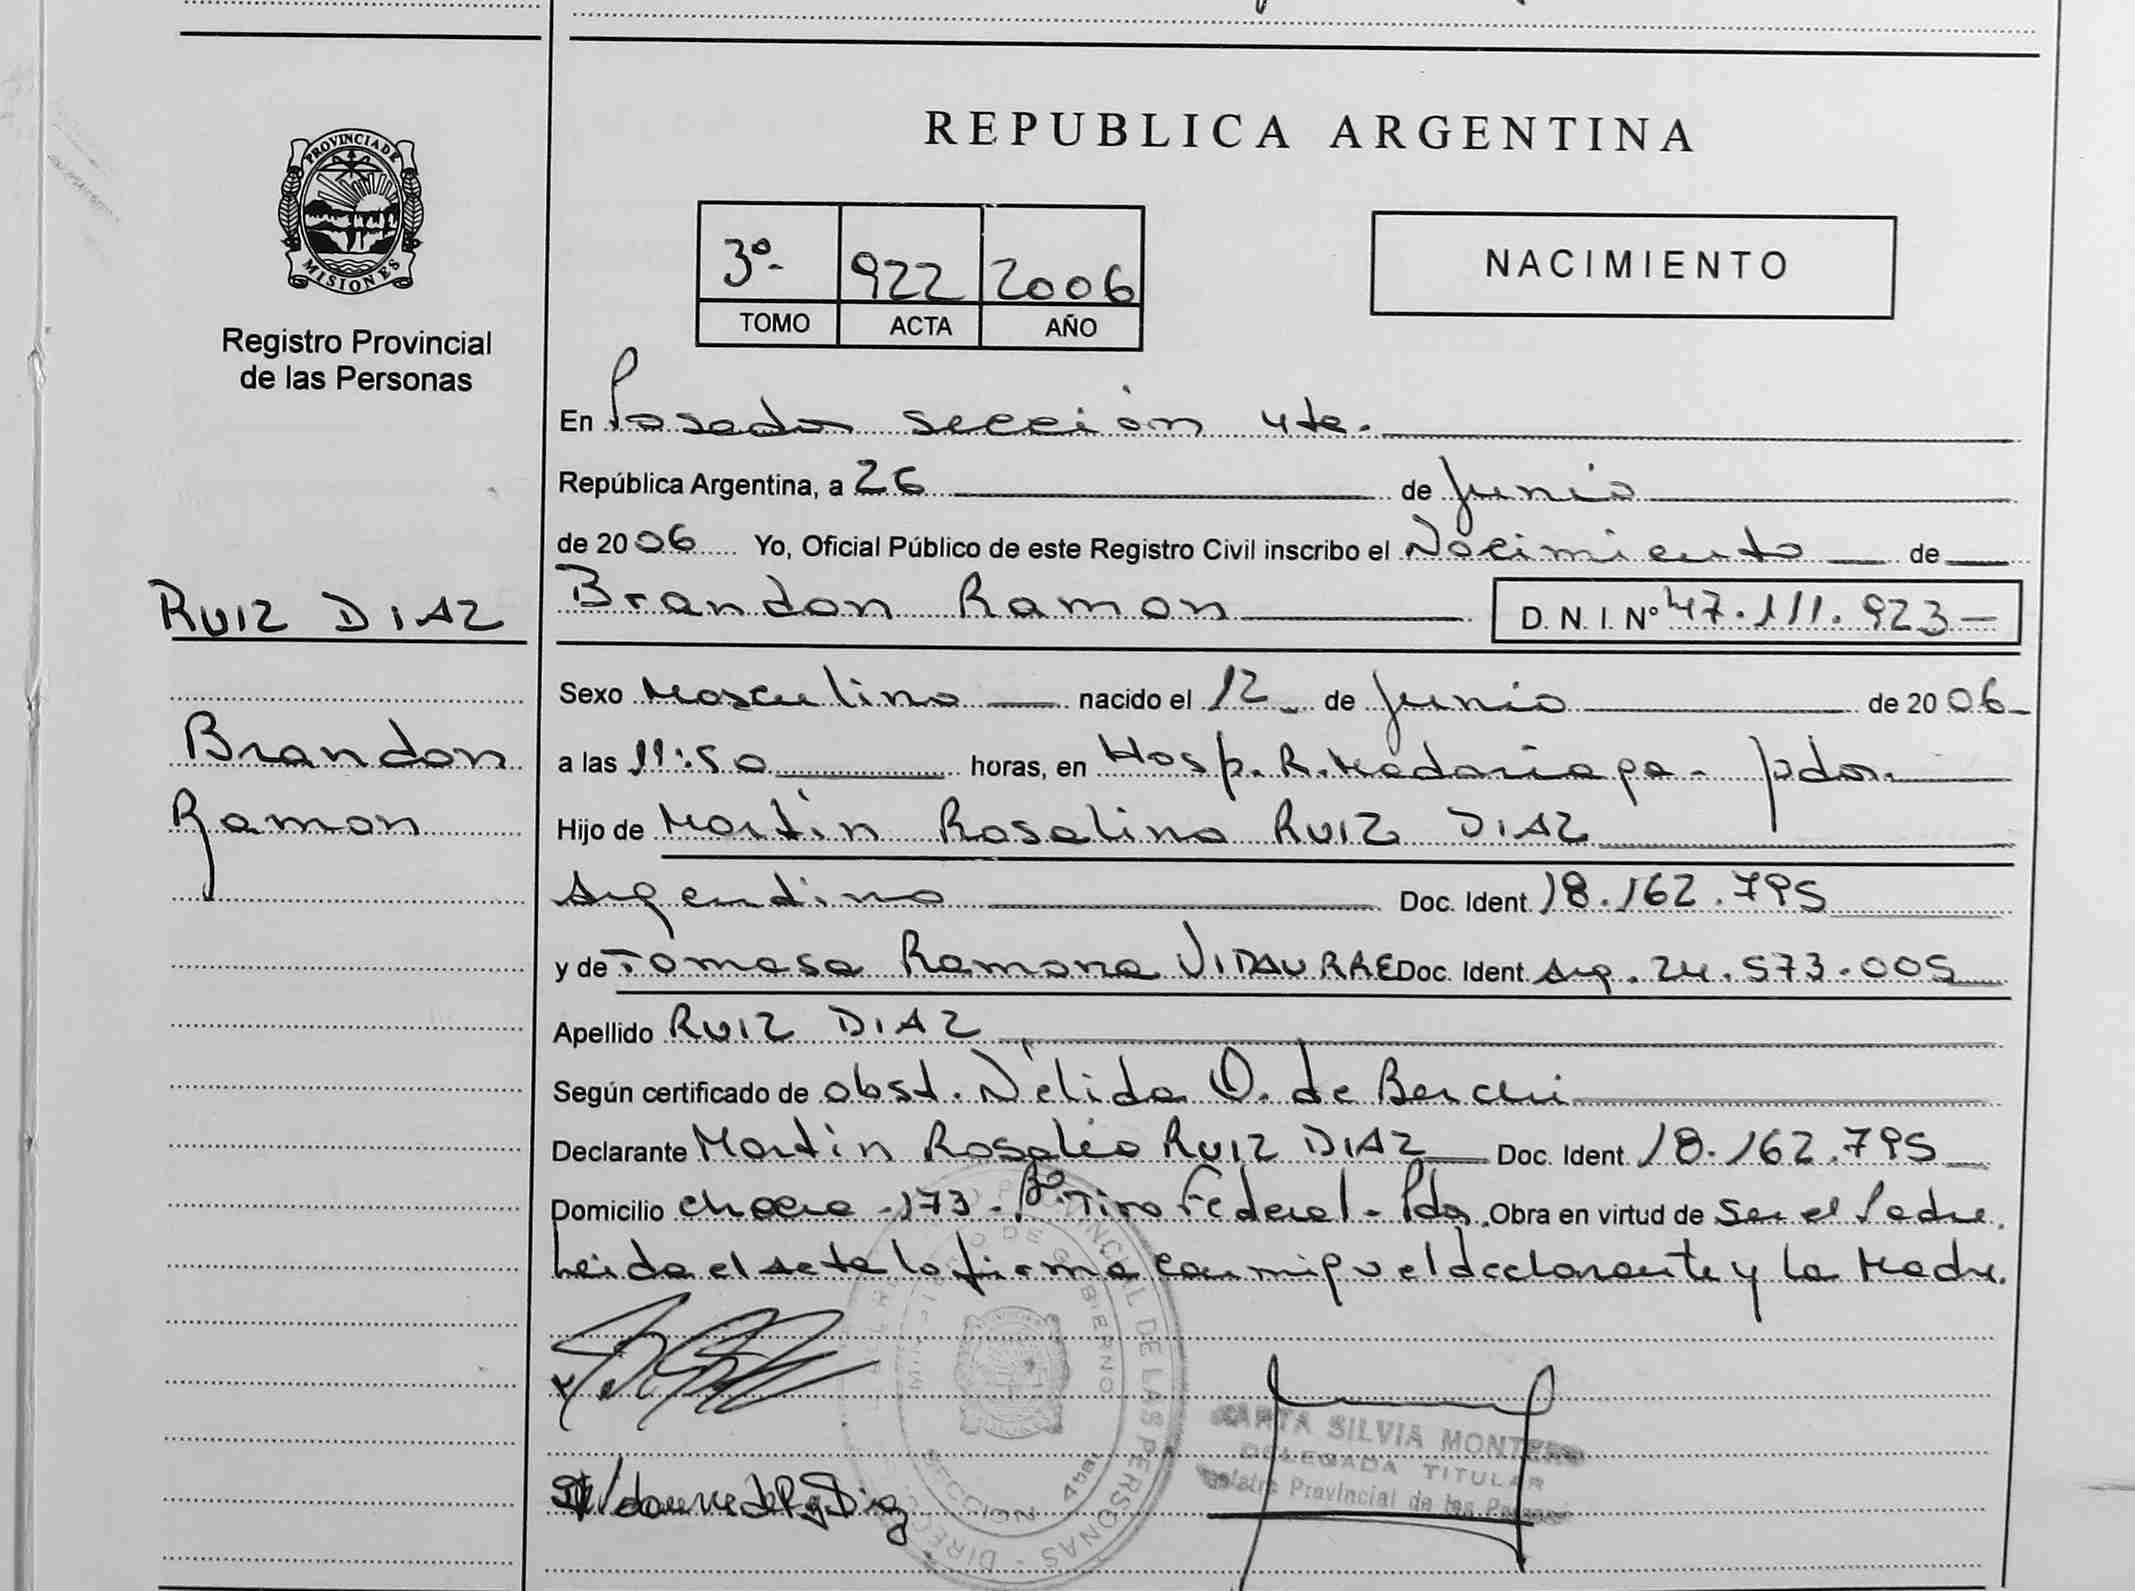 PROVINCIA DE
MISIONES
Registro Provincial
de las Personas
RUIZ DIAZ
Brandon
Ramon
REPUBLICA ARGENTINA
3º- 922 2006
TOMO ACTA AÑO
NACIMIENTO
En Posadas sección 4ta.
República Argentina, a 26 de Junio
de 2006 Yo, Oficial Público de este Registro Civil inscribo el Nacimiento de
Brandon Ramon D. N. I. Nº 47.111.923-
Sexo Masculino nacido el 12 de Junio de 2006
a las 11:50 horas, en Hosp. R. Madariaga - Pdas.
Hijo de Martín Rosalino RUIZ DIAZ
Argentino Doc. Ident. 18.162.795
y de Tomasa Ramona VIDAURRE Doc. Ident. Arg. 24.573.005
Apellido RUIZ DIAZ
Según certificado de obst. Nélida O. de
Declarante Martín RUIZ DIAZ Doc. Ident. 18.162.795
Domicilio -173- Bº Tiro Federal - Pdas. Obra en virtud de ser el Padre.
Leida el acta la firma conmigo el declarante y la Madre.
DE LAS PERSONAS - DIREC
DE GOBIERNO
SECCION 4ª
MARTA SILVIA MONTERO
DELEGADA TITULAR
Registro Provincial de las Personas